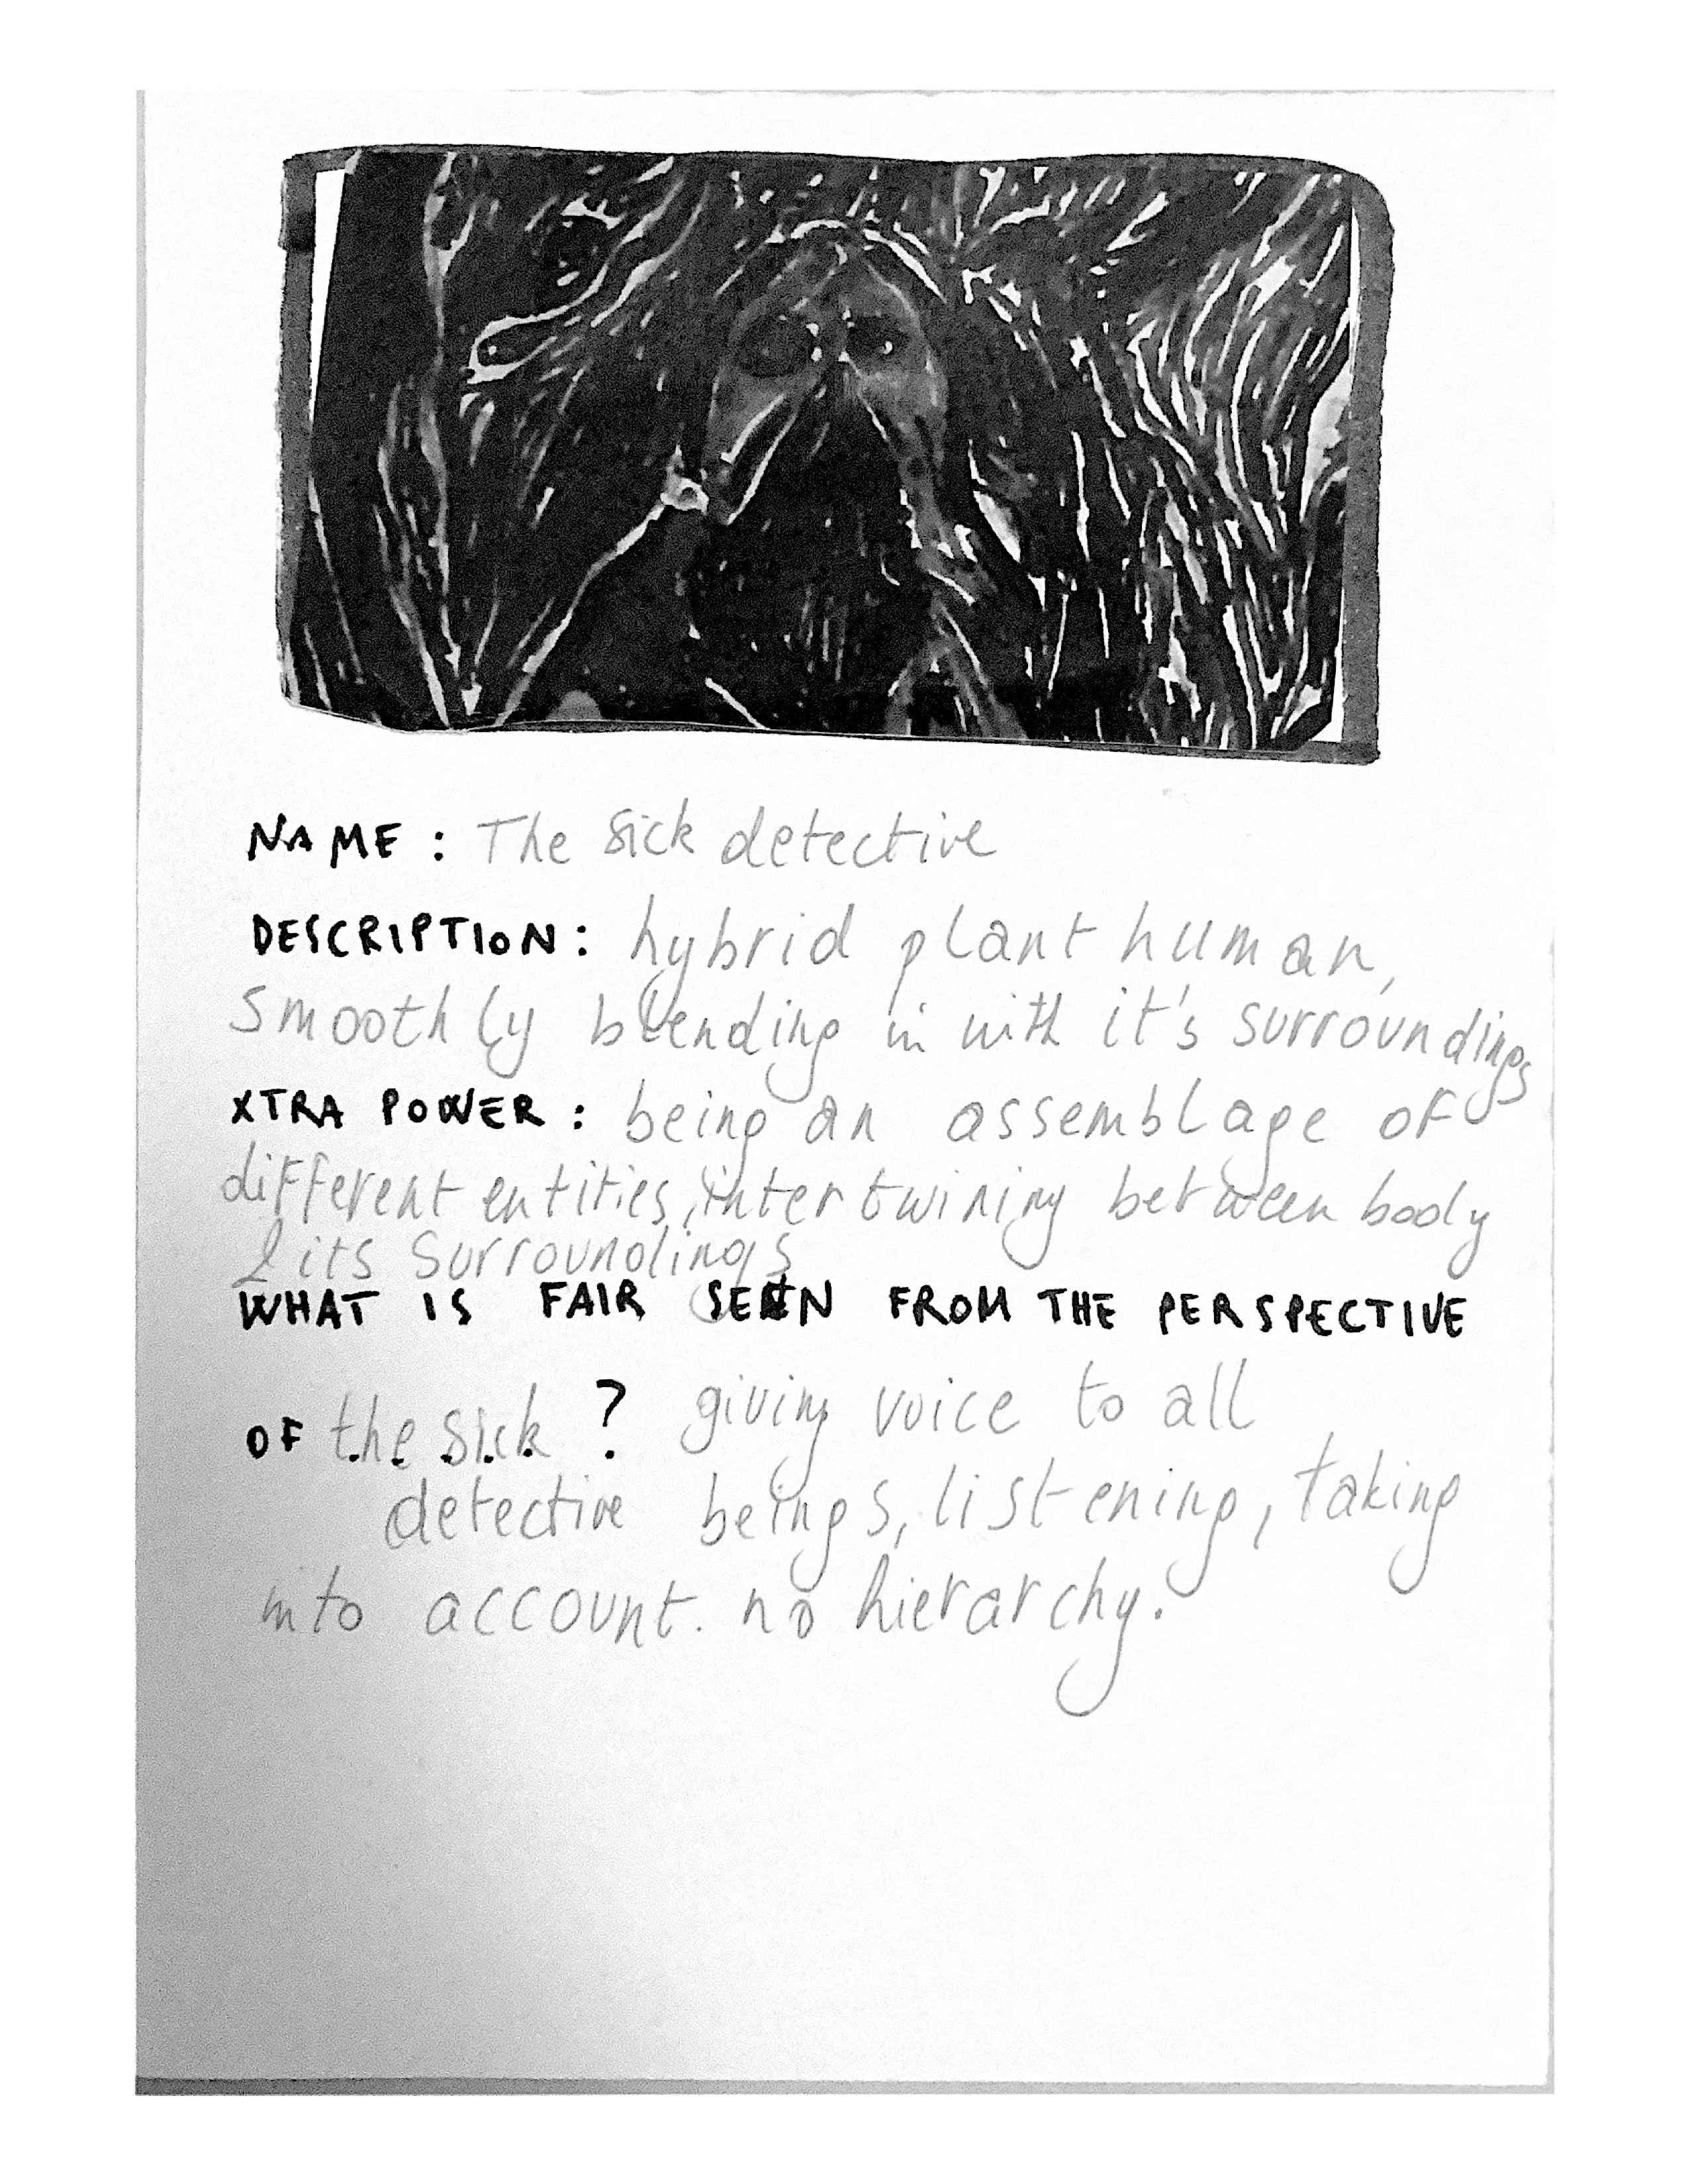 NAME : The sick detective
DESCRIPTION: hybrid plant human,
smoothly blending in with it's surroundings
XTRA POWER : being an assemblage of
different entities, intertwining between body
& its surroundings
WHAT IS FAIR SEEN FROM THE PERSPECTIVE
OF the sick ? giving voice to all
detective beings, listening, taking
into account. no hierarchy.